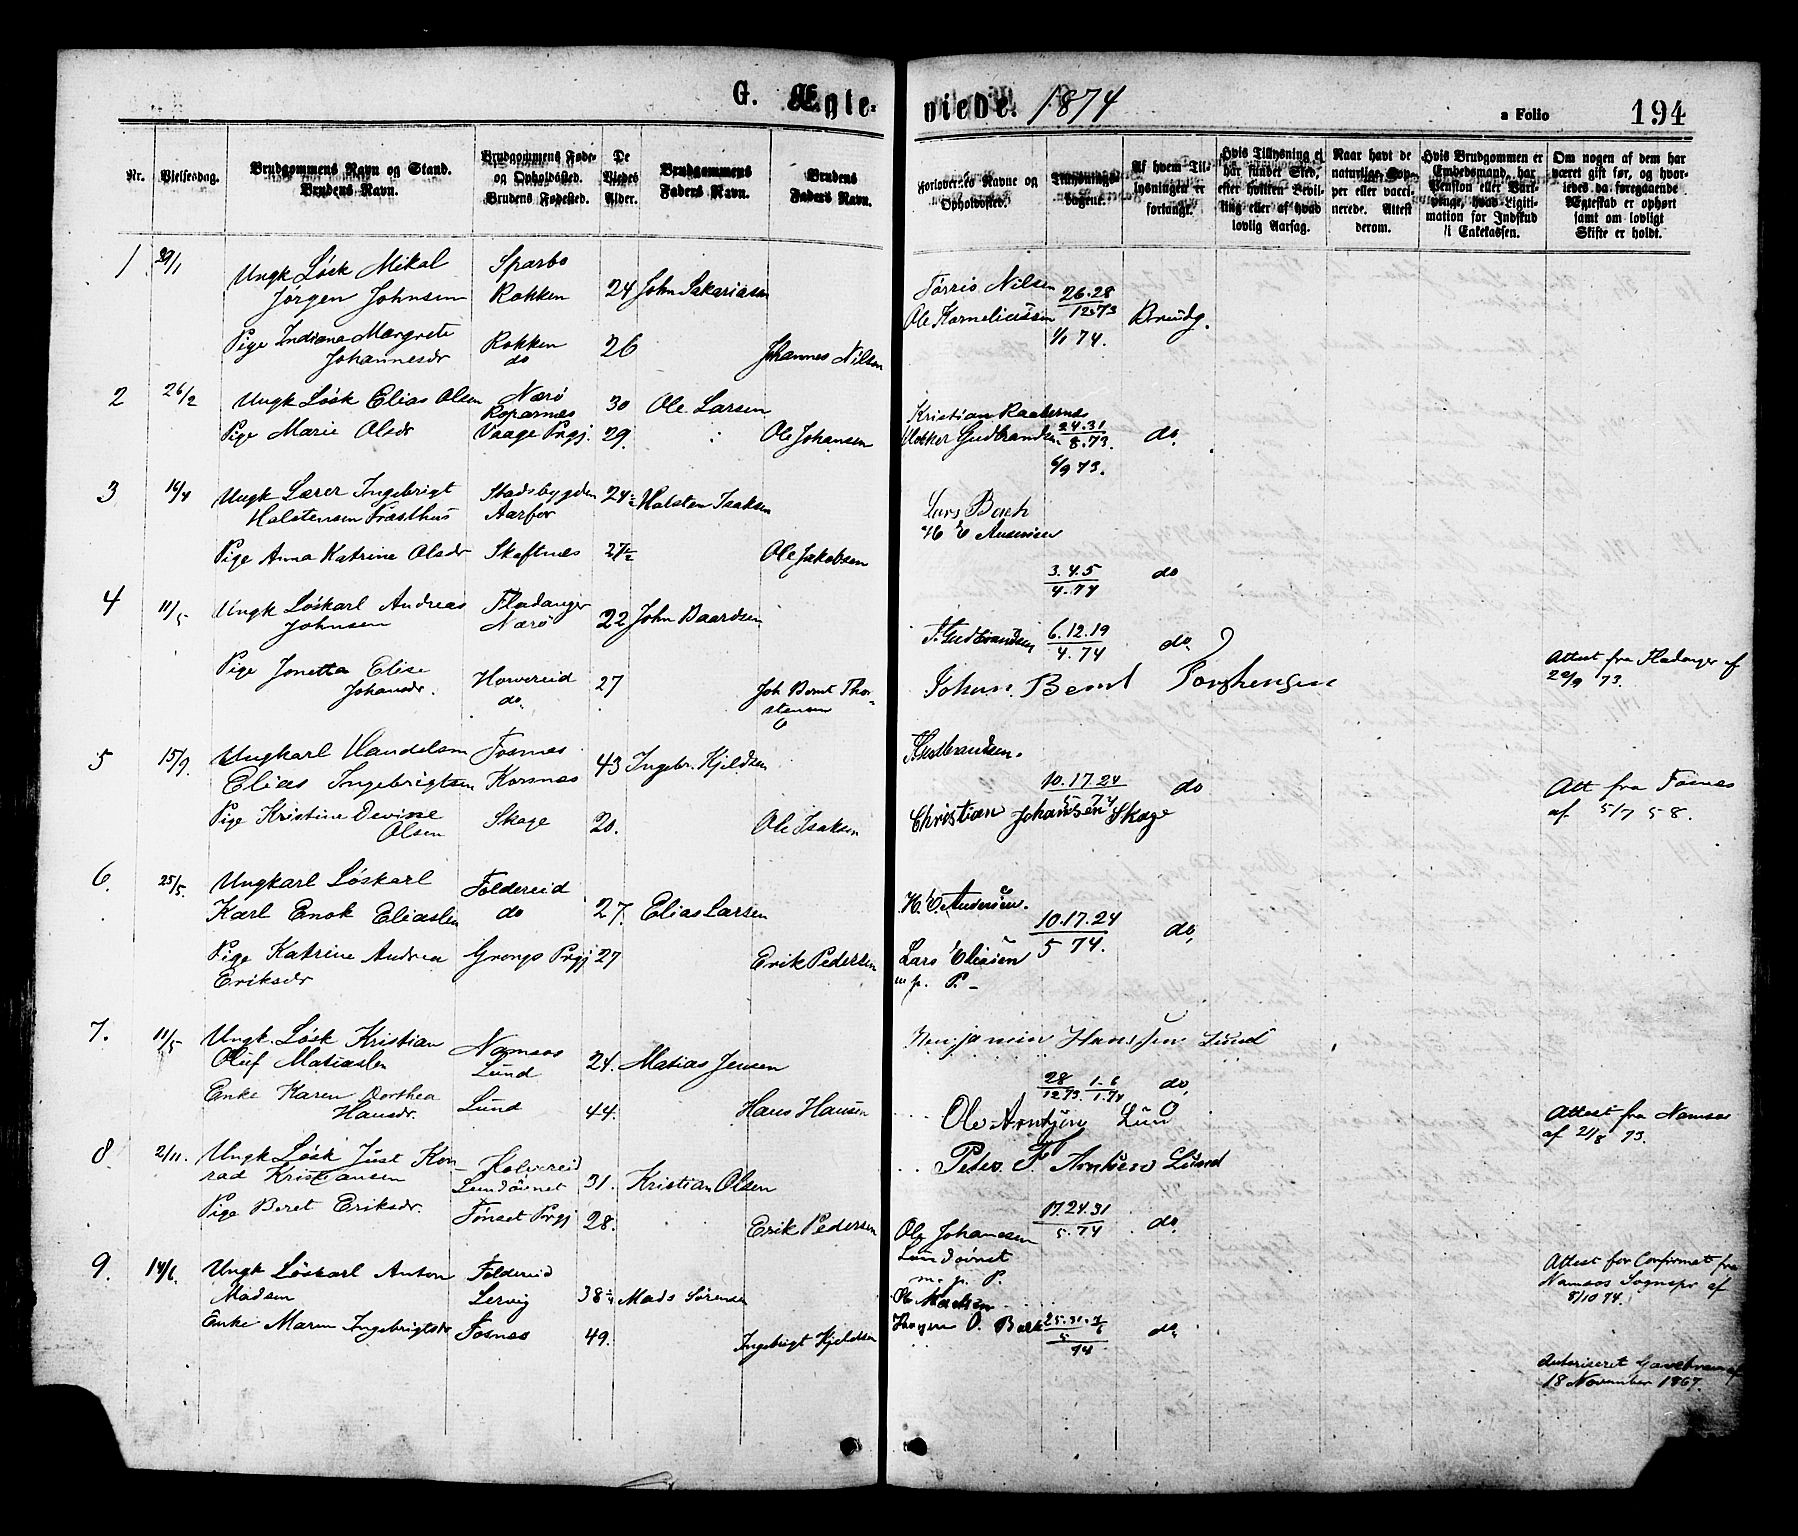 G. Ægte- viede. 1874
a Folio 194
Nr.
Vielsesdag.
Brudgommens Navn og Stand. Brudens Navn.
Brudgommens Føde- og Opholdssted. Brudens Fødested.
De Viedes Alder.
Brudgommens Faders Navn.
Brudens Faders Navn.
Forlovernes Navne og Opholdssted.
Tillysnings-dagene.
Af hvem Tillysningen er forlangt.
Hvis Tillysning ej har funder Sted, efter hvilken Bevilling eller af hvad lovlig Aarsag.
Naar havt de naturlige Kopper eller vaccinerede. Attest derom.
Hvis Brudgommen er Embedsmand, har Pension eller Vartpenge, hvad Ligitimation for Indskud i Enkekassen.
Om nogen af dem har været gift før, og hvorledes da foregaaende Ægteskab er ophørt samt om lovligt Skifte er holdt.
1 29/1 Ungk Løsk Mikal Sparbo
Jørgen Johnsen Rokken 24 John Sakariasen
Tørris Nilsen 26.28
Ole Korneliussen 12 73 Brudg.
1/1 74.
Pige Indiana Margrete Rokken 26 Johannes Nilsen
Johannesdr do
2 26/2 Ungk Løsk Elias Olsen Nærø 30 Ole Larsen
Roparnæs
Pige Marie Olsdr Vaage Prgj. 29. Ole Johansen
Kristian
Gudbrandsen 24.31 8.73. do.
6/9 73.
3 16/4 Ungk Lærer Ingebrigt Stadsbygden 24 Halsten Isaksen
Halstensen Aarfor
Pige Anna Katrine Olsdr Skeftnæs 27½ Ole Jakobsen
Lars Bach
H E Andersen
3.4.5 4.74 do
4 11/5 Ungk Løskarl Andreas Fladanger 22 John Baardsen
Johnsen Nærø
T. Gudbrandsen 6.12.19 4.74 do.
Pige Jonetta Elise Horvereid 27 Joh Bernt Thor-
Johansdr. do. stensen
Johan. Bernt Torstensen
Attest fra Fladanger af
22/9 73.
5 15/9. Ungkarl Handelsm Fosnæs 43 Ingebr. Kjeldsen
Elias Ingebrigtsen Korsnæs
Pige Kristine Devine Skage 20. Ole Isaksen
Olsen
Gudbrandsen.
10.17.24 5 74 do
Christian Johansen Skage
Att fra Fosnes
af 5/7 58.
6. 25/5. Ungkarl Løskarl Foldereid
Karl Enok Eliassen do 27. Elias Larsen
H. E. Andersen. 10.17.24 5 74. do,
Pige Katrine Andrea Grongs Prgj 27 Erik Pedersen
Eriksdr
Lars Eliesen
m. p. P.
7. 11/5 Ungk. Løsk Kristian Namsos
Oluf Matiassen Lund 24. Matias Jensen
Benjamin Hanssen Lund
Enke Karen Dorthea Lund 44. Hans Hansen
Hansdr.
28 12 73. 1.6 1.74 do,
Ole Arntsen Lund
Attest fra Namsos
af 21/8 73.
8. 2/11. Ungk Løsk Just Kon- Kolvereid
rad Kristiansen Lundövnet 31. Kristian Olsen
Peter F Arntsen Lund
Pige Beret Eriksdr. Tønset Prgj 28. Erik Pedersen
17.24.31 5.74 do.
Ole Johansen
Lundövnet
m. p. P.
9. 14/6. Ungk Løskarl Anton Foldereid
Madsen Lervig 38 Mads Sørensen
Enke Maren Ingebrigtsdr Fosnæs 49. Ingebrigt Kjeldsen
O. Madsen
O. Bach 25.31. do.
Attest for Confirmat fra
Namsos Sognepr af
8/10 74.
Autoriseret
18 November 1867.